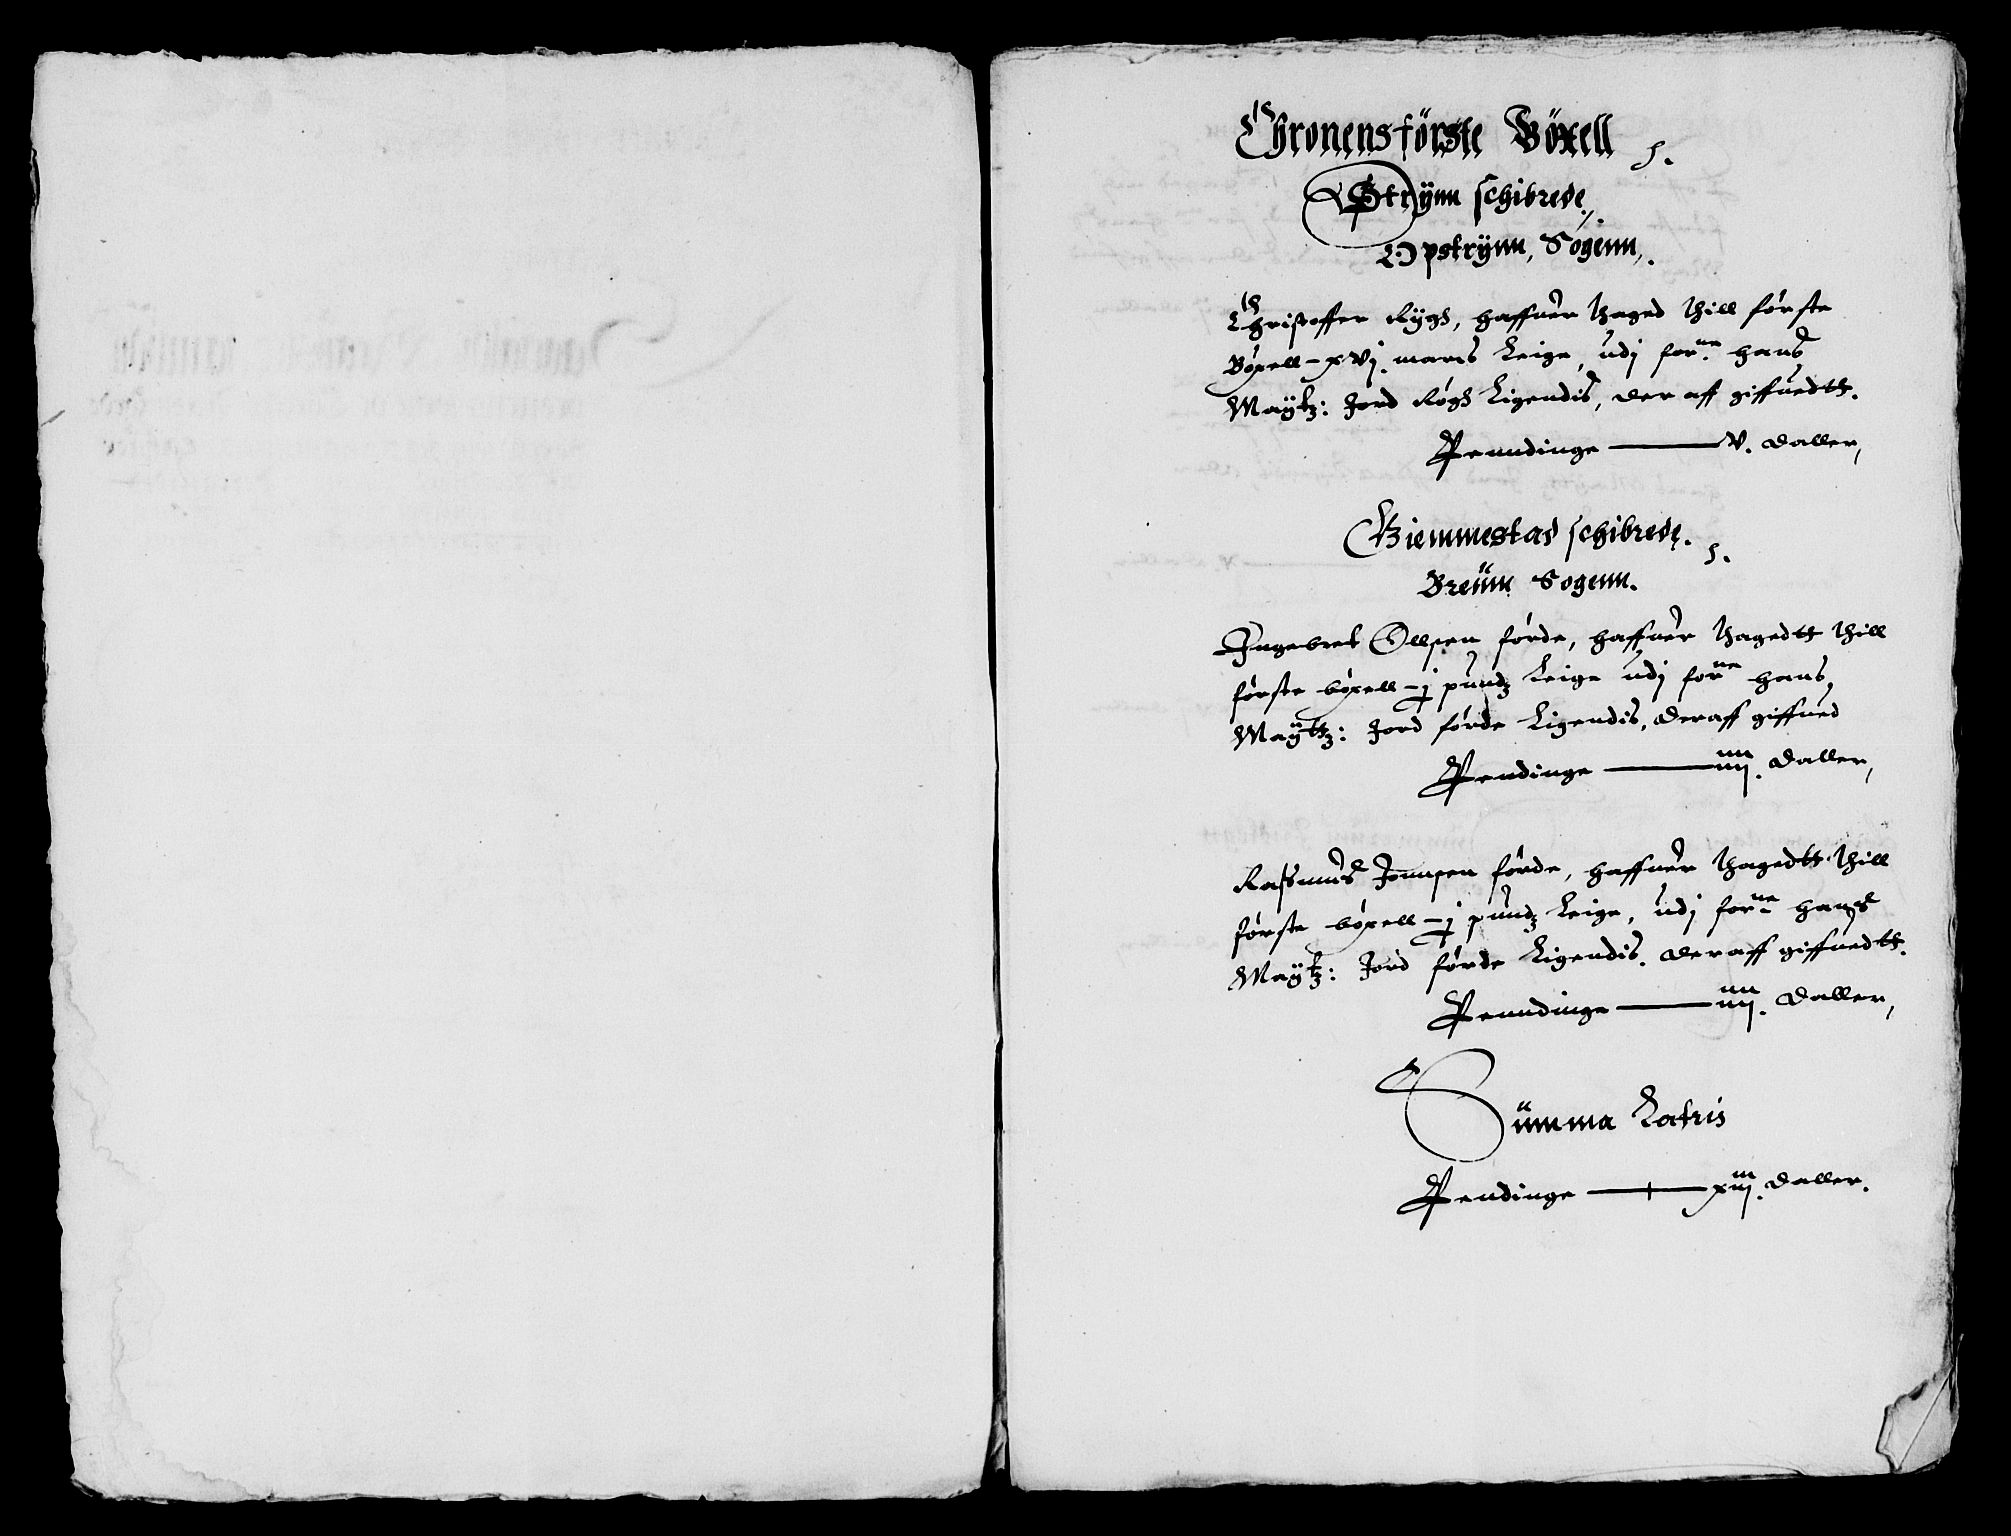 Chronens förste Böxell
Strÿnn schibrede
Opstrÿnn, Sogenn,
Christoffer Rÿgh, haffuer thaged thill förste
Böxell - xvj. marcs Leige, udj for^ne hans
Maÿtz: Jord Rögh Ligendis, der aff giffuedtt.
Penndinge — V. daller,
Giemmestad schibrede.
Breüm Sogenn.
Ingebret Ollsen förde, haffuer thagedtt thill
förste böxell - j pundz Leige udj for^ne hans
Maÿttz: Jord förde Ligendis, deraff giffued
Pendinge — iiij. daller,
Rasmus Jonnsen förde, haffuer thagedtt thill
förste böxell - j pundz Leige, udj for^ne hans
Maÿtz: Jord förde Ligendis. deraff giffuedtt.
Penndinge — iiij. daller,
Sümma Latris
Pendinge — xiij. daller.